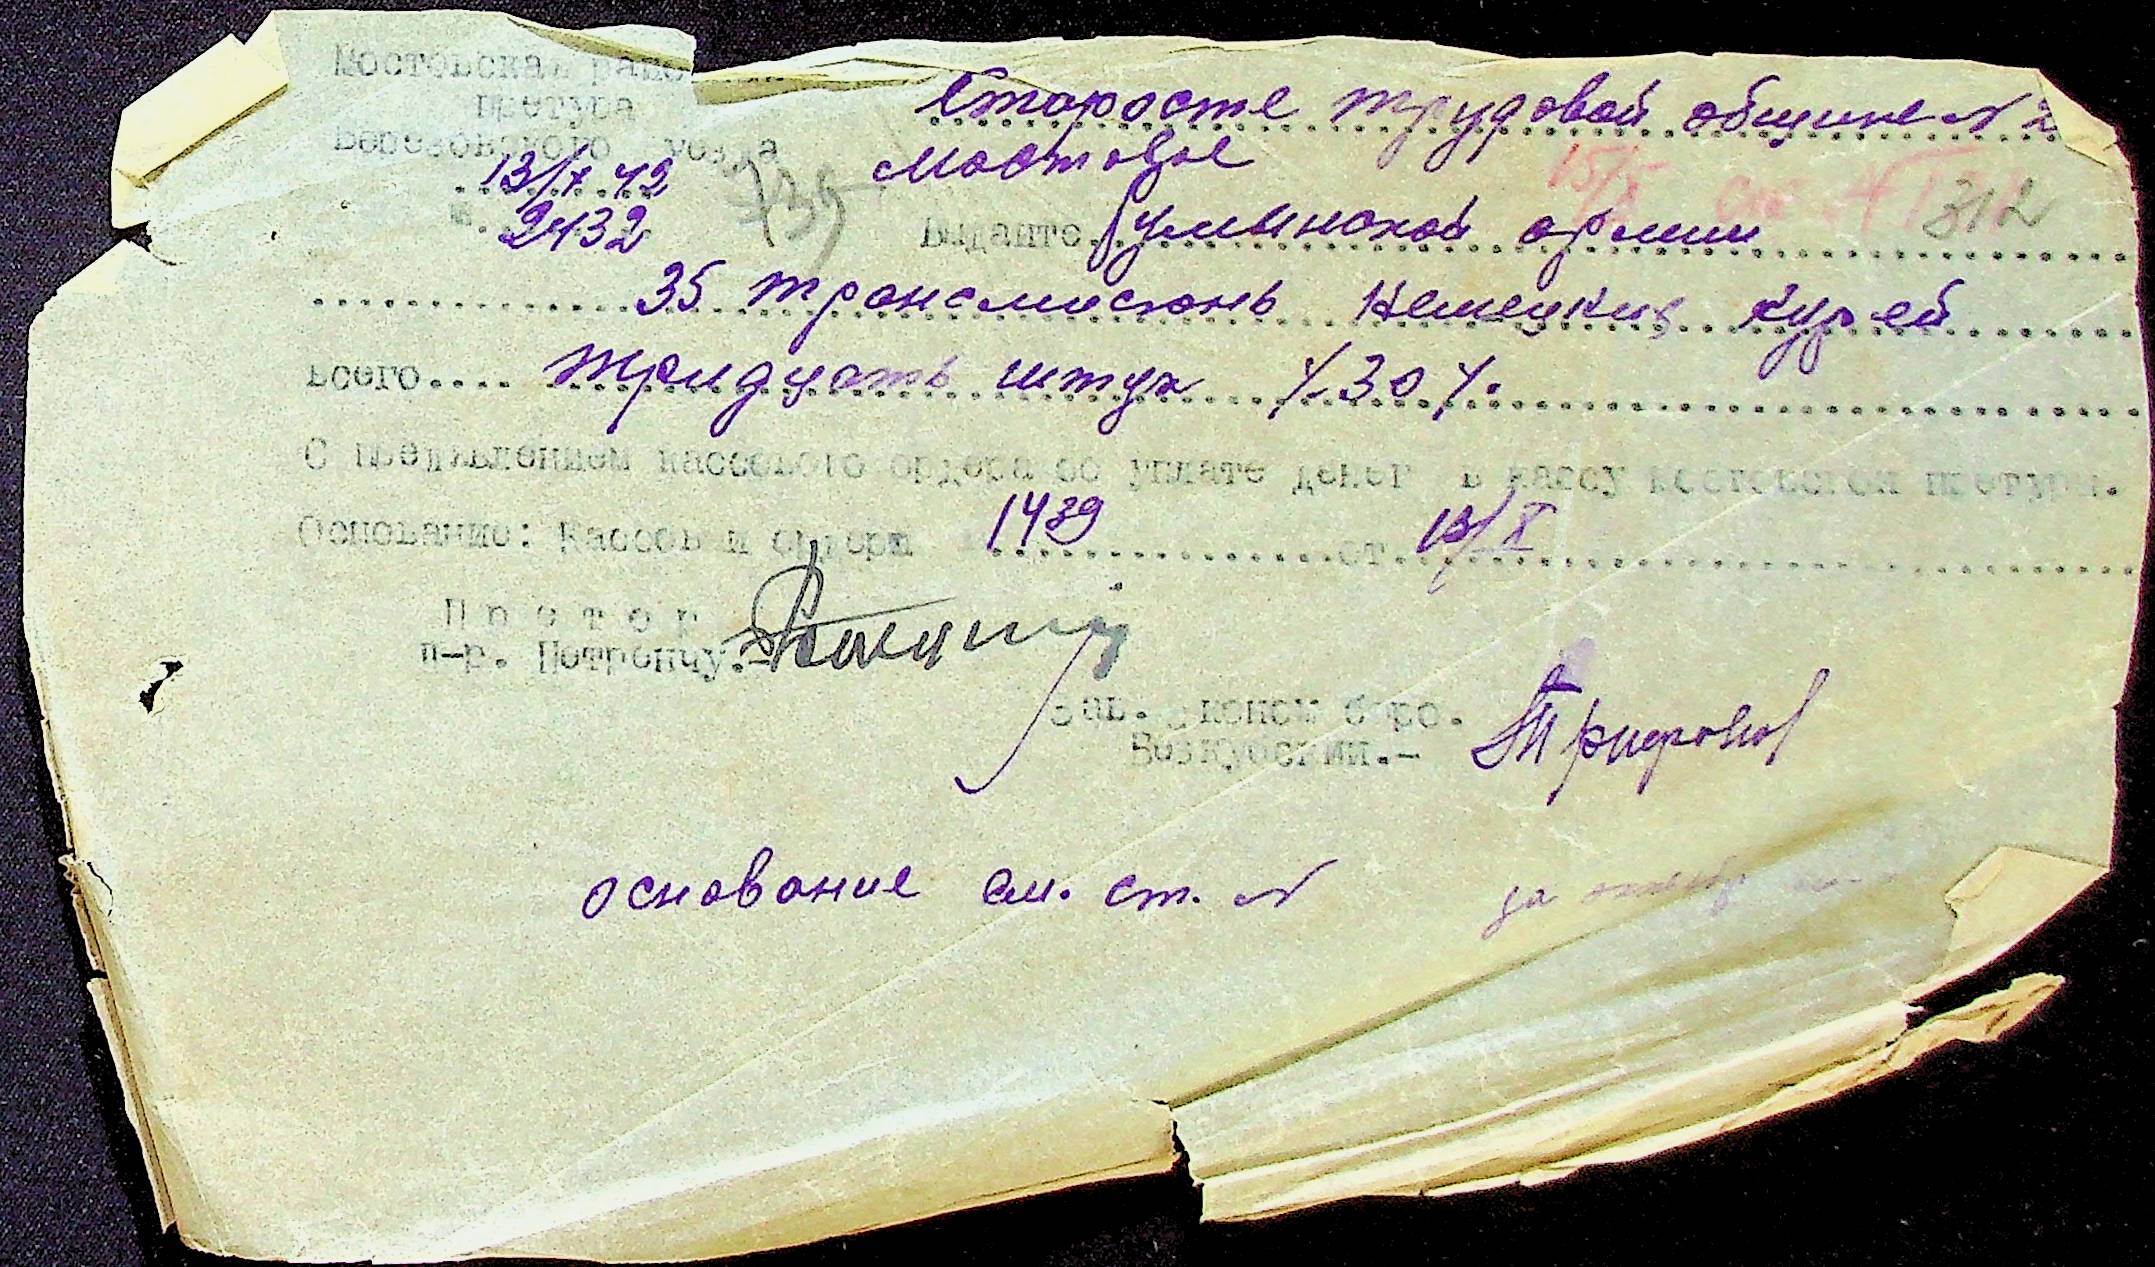 Мостовская районная
претура
Березовского уезда
13/X 42
№ 2432
739
Старосте трудовой общине № 2
Мостовое
15/X
312
Выдайте Румынской армии
35 трансмисюнь Немецких Курей
всего.... тридцать штук /.30/.
С предъявлением кассового ордера об уплате денег в кассу Мостовской претуры.
Основание: Кассовый ордеры 1439 от 13/X
Претор
п-р. Петренчу.-
Зав. Эконом бюро.
Возкубский.-
Трифонов
основание см. ст. №
за